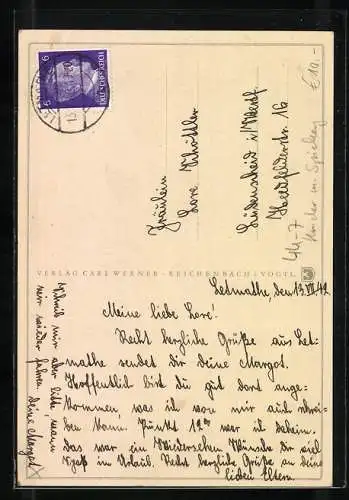 6 6
DEUTSCHES REICH
Fräulein
Lore Schöttler
Lüdenscheid i/Westf.
Heedfelderstr. 16
€ 10.-
VERLAG CARL WERNER · REICHENBACH i. VOGTL.
Letmathe, den 13. VII. 42
Meine liebe Lore.
Recht herzliche Grüße aus Let-
mathe sendet dir deine Margot.
Hoffentlich bist du gut dort ange-
kommen, was ich von mir auch schrei-
ben kann. Punkt war ich daheim.
Das war ein Wiedersehen. Wünsche dir viel
Spaß im Urlaub. Recht herzliche Grüße an deine
lieben Eltern.
Schreib mir aber bitte wann
wir wieder fahren. Deine Margot